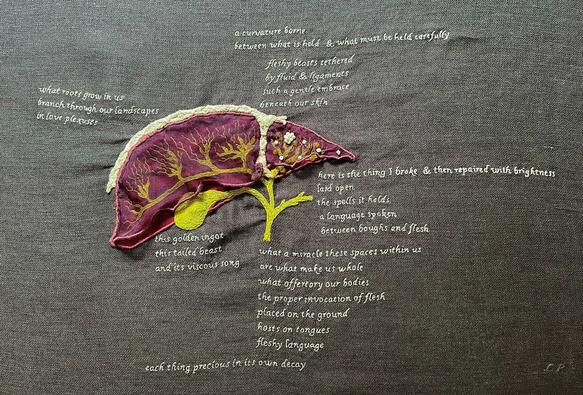 a curvature borne
between what is held & what must be held carefully
fleshy beasts tethered
by fluid & ligaments
such a gentle embrace
beneath our skin
what roots grow in us
branch through our landscapes
in love plexuses
here is the thing I broke & then repaired with brightness
laid open
the spells it holds
a language spoken
between boughs and flesh
this golden ingot
this tailed beast
and its viscous song
what a miracle these spaces within us
are what make us whole
what offertory our bodies
the proper invocation of flesh
placed on the ground
hosts on tongues
fleshy language
each thing precious in its own decay